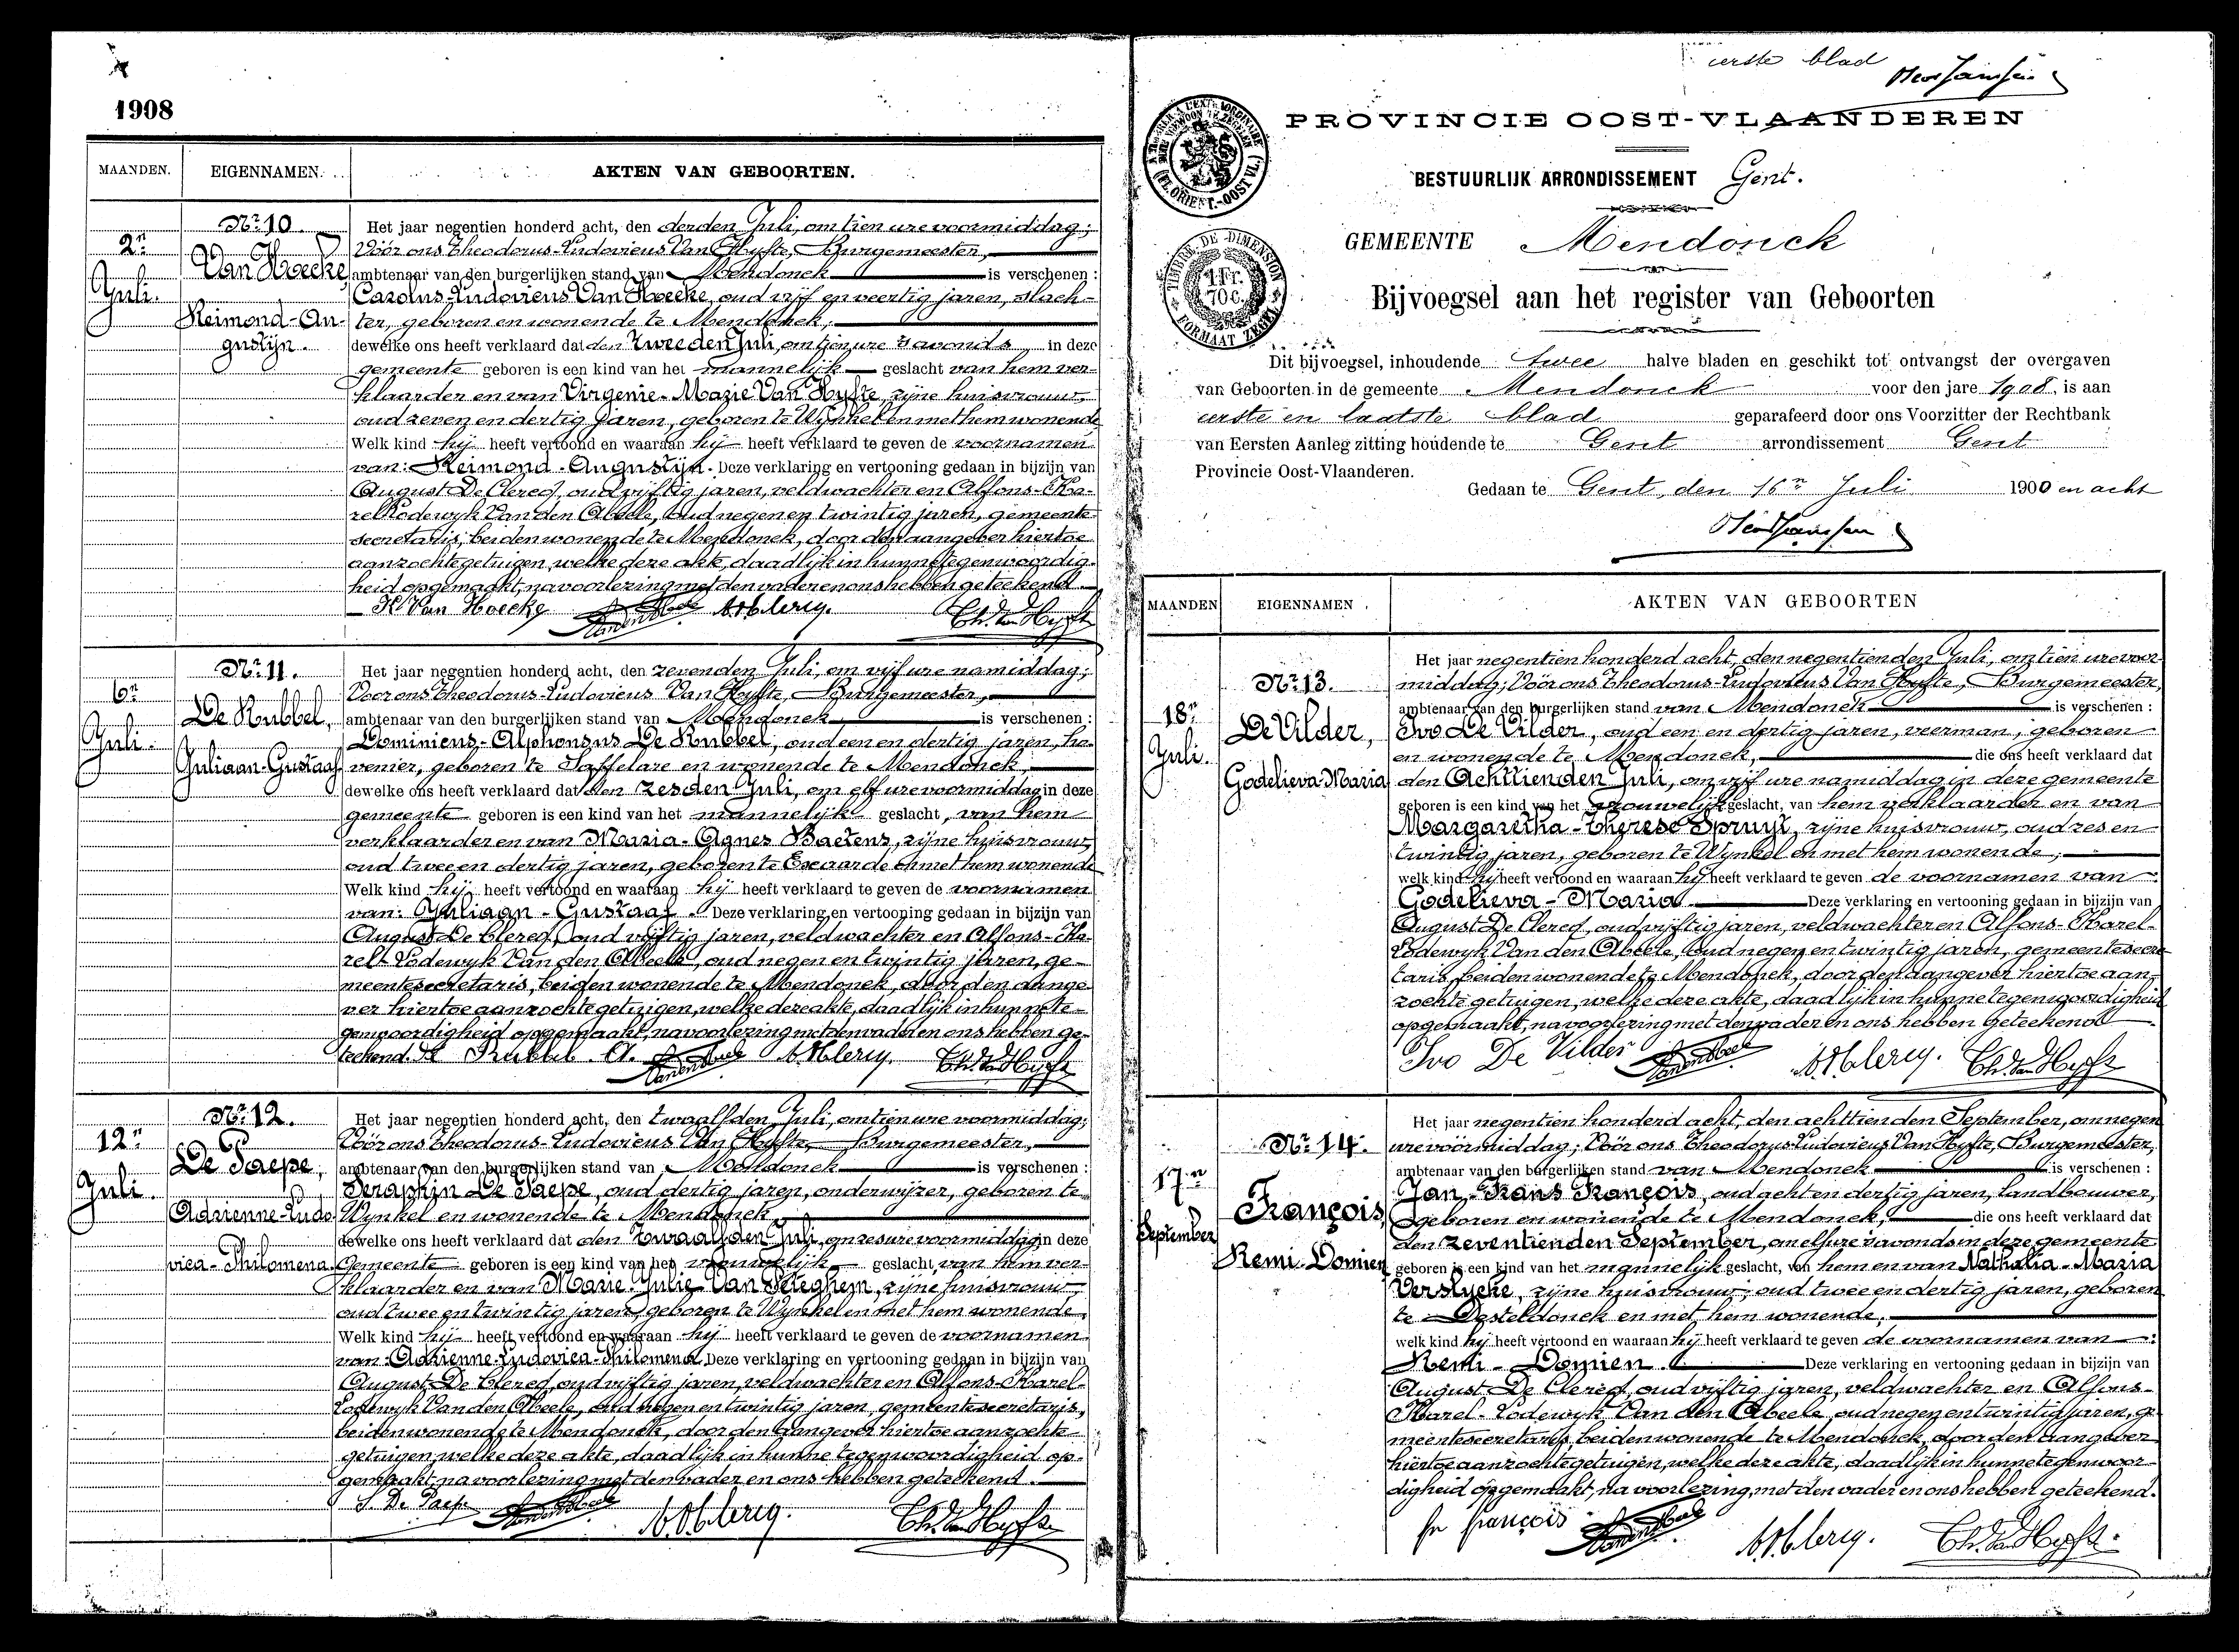 1908
MAANDEN. EIGENNAMEN. AKTEN VAN GEBOORTEN.
2n Juli.
No 10.
Van Hoecke,
Reimond-Au-
gustijn.
Het jaar negentien honderd acht, den derden Juli, om tien ure voormiddag;
Vóór ons Theodorus-Ludovicus Van Hyfte, Burgemeester,
ambtenaar van den burgerlijken stand van Mendonck is verschenen :
Carolus-Ludovicus Van Hoecke, oud vijf en veertig jaren, slach-
ter, geboren en wonende te Mendonck,
dewelke ons heeft verklaard dat den tweeden Juli, om tien ure 's avonds, in deze
gemeente geboren is een kind van het mannelijk geslacht van hem ver-
klaarder en van Virgenie-Marie Van Hyfte, zijne huisvrouw,
oud zeven en dertig jaren, geboren te Wynkel en met hem wonende
Welk kind hij heeft vertoond en waaraan hij heeft verklaard te geven de voornamen
van: Reimond-Augustijn. Deze verklaring en vertooning gedaan in bijzijn van
August De Clercq, oud vijftig jaren, veldwachter en Alfons-Ka-
rel Lodewyk Van den Abeele, oud negen en twintig jaren, gemeente-
secretaris, beiden wonende te Mendonck, door den aangever hiertoe
aanzochte getuigen, welke deze akte, daadlijk in hunne tegenwoordig-
heid opgemaakt, na voorlezing met den vader en ons hebben geteekend.
K Van Hoecke Vanden Abeele A. De Clercq. Th. Van Hyfte
6n Juli.
No 11.
De Rubbel,
Juliaan-Gustaaf
Het jaar negentien honderd acht, den zevenden Juli, om vijf ure namiddag;
Voor ons Theodorus-Ludovicus Van Hyfte, Burgemeester,
ambtenaar van den burgerlijken stand van Mendonck is verschenen :
Dominicus-Alphonsus De Rubbel, oud een en dertig jaren, ho-
venier, geboren te Saffelare en wonende te Mendonck,
dewelke ons heeft verklaard dat den zesden Juli, om elf ure voormiddag in deze
gemeente geboren is een kind van het mannelijk geslacht, van hem
verklaarder en van Maria-Agnes Baetens, zijne huisvrouw,
oud twee en dertig jaren, geboren te Exaarde en met hem wonende
Welk kind hij heeft vertoond en waaraan hij heeft verklaard te geven de voornamen
van: Juliaan-Gustaaf. Deze verklaring en vertooning gedaan in bijzijn van
August De Clercq, oud vijftig jaren, veldwachter en Alfons-Ka-
rel-Lodewyk Van den Abeele, oud negen en twintig jaren, ge-
meentesecretaris, beiden wonende te Mendonck, door den aange-
ver hiertoe aanzochte getuigen, welke deze akte, daadlijk in hunne te-
genwoordigheid opgemaakt, na voorlezing met den vader en ons hebben ge-
teekend. De Rubbel A. Vanden Abeele A. De Clercq. Th. Van Hyfte
12n Juli.
No 12.
De Paepe,
Adrienne-Ludo-
vica-Philomena.
Het jaar negentien honderd acht, den twaalfden Juli, om tien ure voormiddag;
Vóór ons Theodorus-Ludovicus Van Hyfte, Burgemeester,
ambtenaar van den burgerlijken stand van Mendonck is verschenen :
Seraphin De Paepe, oud dertig jaren, onderwijzer, geboren te
Wynkel en wonende te Mendonck
dewelke ons heeft verklaard dat den twaalfden Juli, om zes ure voormiddag in deze
Gemeente geboren is een kind van het vrouwelijk geslacht, van hem ver-
klaarder en van Marie-Julie Van Peteghem, zijne huisvrouw,
oud twee en twintig jaren, geboren te Wynkel en met hem wonende
Welk kind hij heeft vertoond en waaraan hij heeft verklaard te geven de voornamen
van: Adrienne-Ludovica-Philomena. Deze verklaring en vertooning gedaan in bijzijn van
August De Clercq, oud vijftig jaren, veldwachter en Alfons-Karel-
Lodewyk Van den Abeele, oud negen en twintig jaren, gemeentesecretaris,
beiden wonende te Mendonck, door den aangever hiertoe aanzochte
getuigen, welke deze akte, daadlijk in hunne tegenwoordigheid op-
gemaakt, na voorlezing met den vader en ons hebben geteekend.
S. De Paepe Vanden Abeele A. De Clercq. Th. Van Hyfte
eerste blad
PROVINCIE OOST-VLAANDEREN
TIMBRE DE DIMENSION
1 Fr. 70 C.
FORMAAT ZEGEL
BESTUURLIJK ARRONDISSEMENT Gent.
GEMEENTE Mendonck
Bijvoegsel aan het register van Geboorten
Dit bijvoegsel, inhoudende twee halve bladen en geschikt tot ontvangst der overgaven
van Geboorten in de gemeente Mendonck voor den jare 1908, is aan
eerste en laatste blad geparafeerd door ons Voorzitter der Rechtbank
van Eersten Aanleg zitting houdende te Gent arrondissement Gent
Provincie Oost-Vlaanderen.
Gedaan te Gent, den 16n Juli 1900 en acht
MAANDEN EIGENNAMEN. AKTEN VAN GEBOORTEN
18n Juli.
No 13.
De Vilder,
Godelieva-Maria
Het jaar negentien honderd acht, den negentienden Juli, om tien ure voor-
middag; Vóór ons Theodorus-Ludovicus Van Hyfte, Burgemeester,
ambtenaar van den burgerlijken stand van Mendonck is verschenen :
Ivo De Vilder, oud een en dertig jaren, veerman, geboren
en wonende te Mendonck, die ons heeft verklaard dat
den achttienden Juli, om vijf ure namiddag in deze gemeente
geboren is een kind van het vrouwelijk geslacht, van hem verklaarder en van
Margaretha-Therese Spruyt, zijne huisvrouw, oud zes en
twintig jaren, geboren te Wynkel en met hem wonende;
welk kind hij heeft vertoond en waaraan hij heeft verklaard te geven de voornamen van :
Godelieva-Maria Deze verklaring en vertooning gedaan in bijzijn van
August De Clercq, oud vijftig jaren, veldwachter en Alfons-Karel-
Lodewyk Van den Abeele, oud negen en twintig jaren, gemeentesecre-
taris, beiden wonende te Mendonck, door den aangever hiertoe aan-
zochte getuigen, welke deze akte, daadlijk in hunne tegenwoordigheid
opgemaakt, na voorlezing met den vader en ons hebben geteekend
Ivo De Vilder Vanden Abeele A. De Clercq. Th. Van Hyfte
17n September
No 14.
François,
Remi-Domien
Het jaar negentien honderd acht, den achttienden September, om negen
ure voormiddag; Vóór ons Theodorus-Ludovicus Van Hyfte, Burgemeester,
ambtenaar van den burgerlijken stand van Mendonck is verschenen :
Jan-Frans François, oud acht en dertig jaren, landbouwer,
geboren en wonende te Mendonck, die ons heeft verklaard dat
den zeventienden September, om elf ure 's avonds in deze gemeente
geboren is een kind van het mannelijk geslacht, van hem en van Nathalia-Maria
Verslycke, zijne huisvrouw, oud twee en dertig jaren, geboren
te Desteldonck en met hem wonende,
welk kind hij heeft vertoond en waaraan hij heeft verklaard te geven de voornamen van :
Remi-Domien. Deze verklaring en vertooning gedaan in bijzijn van
August De Clercq, oud vijftig jaren, veldwachter en Alfons-
Karel-Lodewyk Van den Abeele, oud negen en twintig jaren, ge-
meentesecretaris, beiden wonende te Mendonck, door den aangever
hiertoe aanzochte getuigen, welke deze akte, daadlijk in hunne tegenwoor-
digheid opgemaakt, na voorlezing, met den vader en ons hebben geteekend.
fr françois Vanden Abeele A. De Clercq. Th. Van Hyfte.